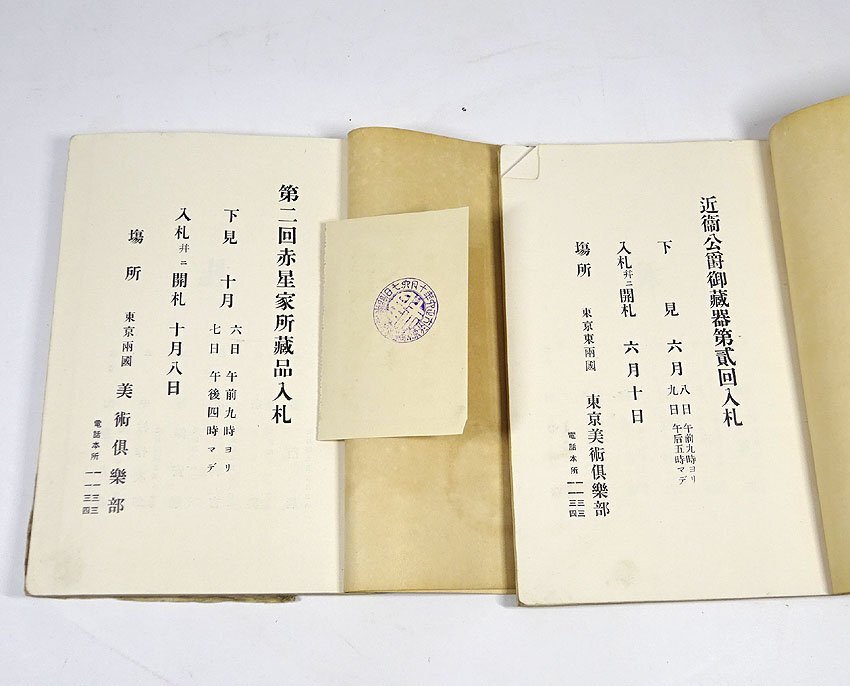 近衞公爵御藏器第貳回入札
下見 六月 八日 午前九時ヨリ
九日 午后五時マデ
入札幷ニ開札 六月十日
塲所 東京東兩國 東京美術俱樂部
電話本所 一一三三
一一三四
第二回赤星家所藏品入札
下見 十月 六日 午前九時ヨリ
七日 午後四時マデ
入札幷ニ開札 十月八日
塲所 東京兩國 美術俱樂部
電話本所 一一三三
一一三四